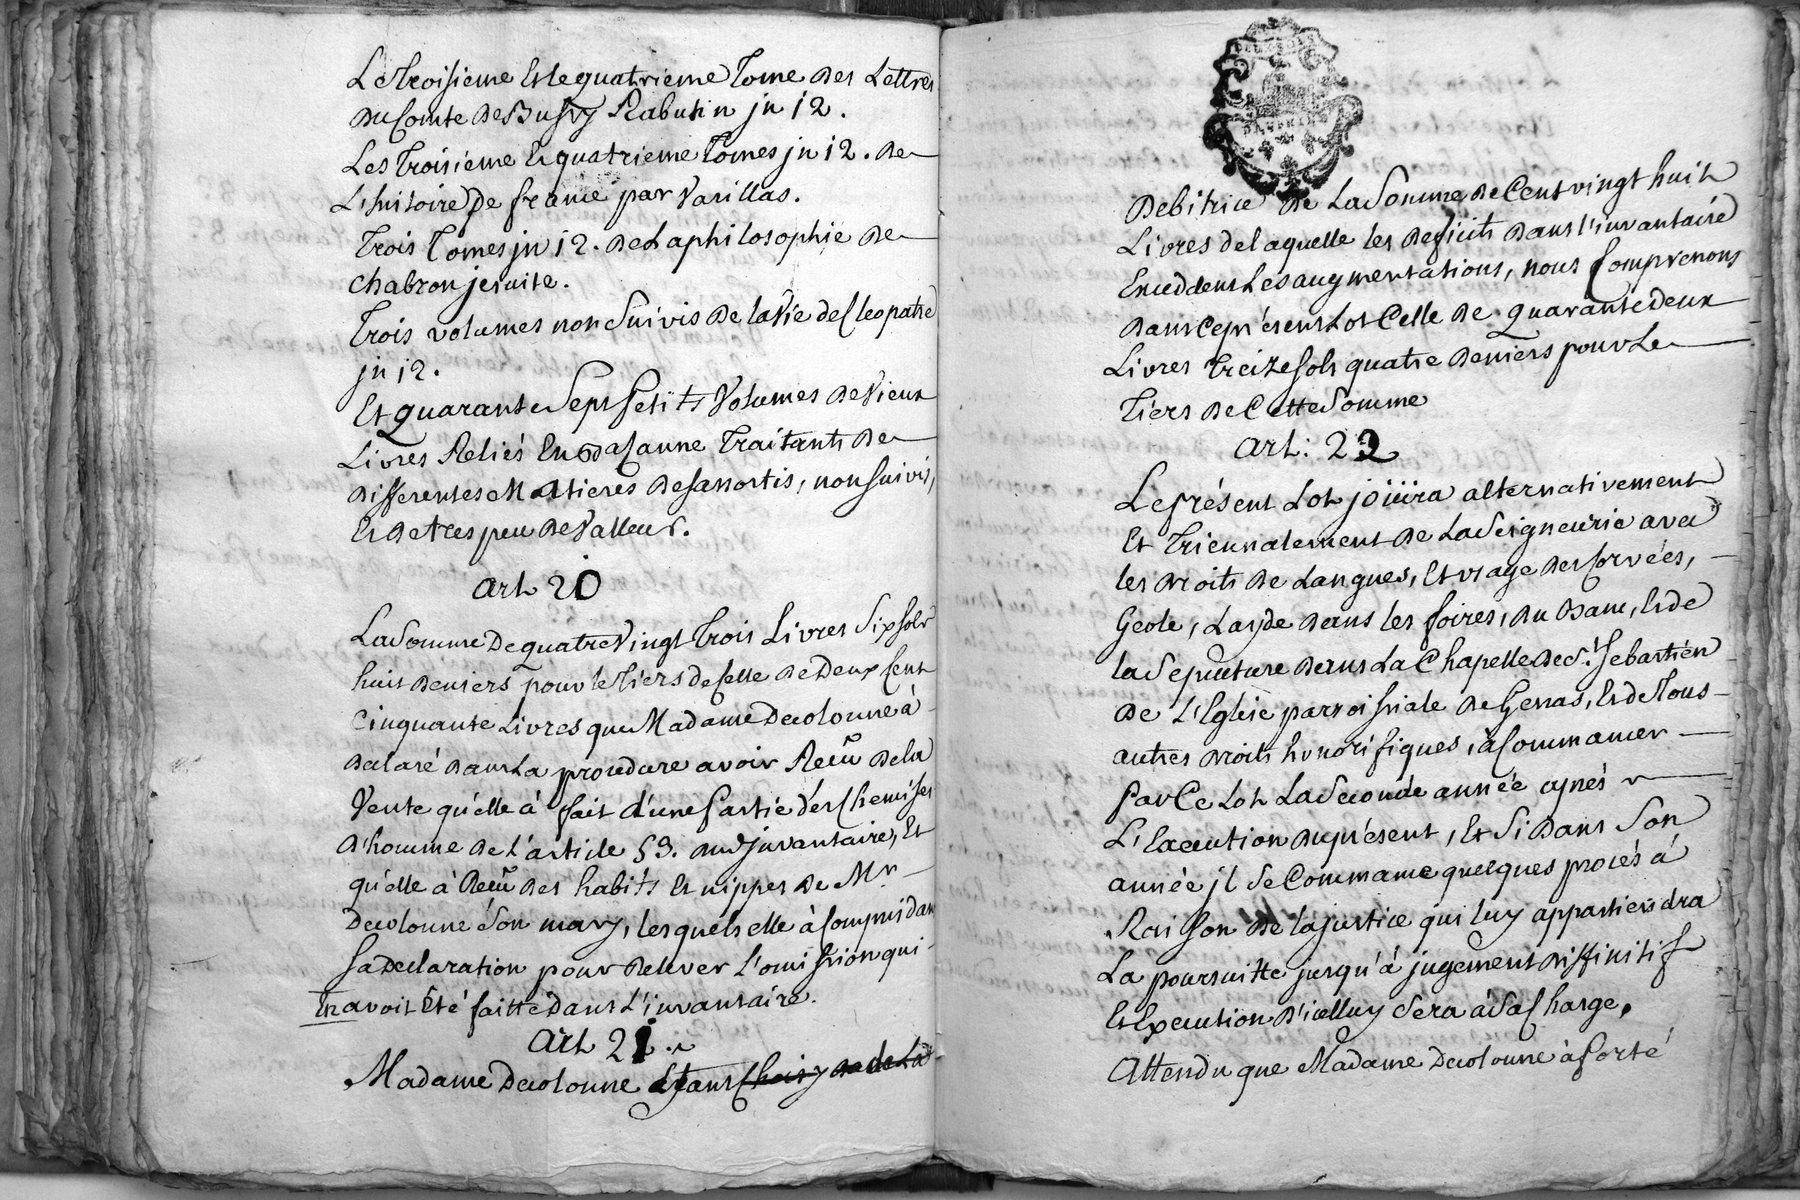 Le troisieme et le quatrieme Tome des Lettres
du Comte de Bussy Rabutin jn 12.
Les Troisieme et quatrieme Tomes jn 12. de
L'histoire de france par Varillas.
Trois Tomes jn 12. de La philosophie de
chabron jesuite.
Trois volumes non Suivis de la Vie de Cleopatre
jn 12.
Et quarante sept petits Volumes de Vieux
Livres Reliés En Bazanne Traitants de
differentes Matieres desamortis, non suivis,
Et de tres peu de Valleur.
Art 20
La Somme de quatre Vingt Trois Livres Six sols
huit deniers pour le Tiers de Celle de Deux Cent
Cinquante Livres que Madame Decolonne à
declaré dans La procedure avoir Reçu de la
Vente qu'elle à fait d'une partie des Chemises
d'homme de L'article 59. dud jnvantaire, Et
qu'elle à Reçu des habits Et nippes de Mr
Decolonne Son mary, lesquels elle à Compris dans
Sa declaration pour Relever L'omission qui
En avoit Eté faitte dans L'invantaire.
Art 21.
Madame Decolonne Etant Choisy de La
DAUPHINÉ
Debitrice de La Somme de Cent vingt huit
Livres de laquelle les deficits dans l'invantaire
Excedent Les augmentations, nous Comprenons
dans Ce présent Lot Celle de quarante deux
Livres Treize sols quatre deniers pour Le
Tiers de Cette Somme
Art: 22
Le présent Lot joüira alternativement
Et Triennalement de La Seigneurie avec
les droits de Langues, Et usage des Corvées,
Geole, Layde dans les foires, du Banc, Et de
la Sepulture dans La Chapelle de St. Sebastien
de L'Eglise parroissiale de Genas, Et de Tous
autres droits honorifiques, à Commancer
par Ce Lot La Seconde année après
L'Execution du présent, Et Si dans Son
année jl Se Commance quelques procés à
Raison de la justice qui luy appartiendra
La poursuitte jusqu'à jugement diffinitif
Et Execution d'icelluy Sera à Sa Charge,
Attendu que Madame Decolonne à porté